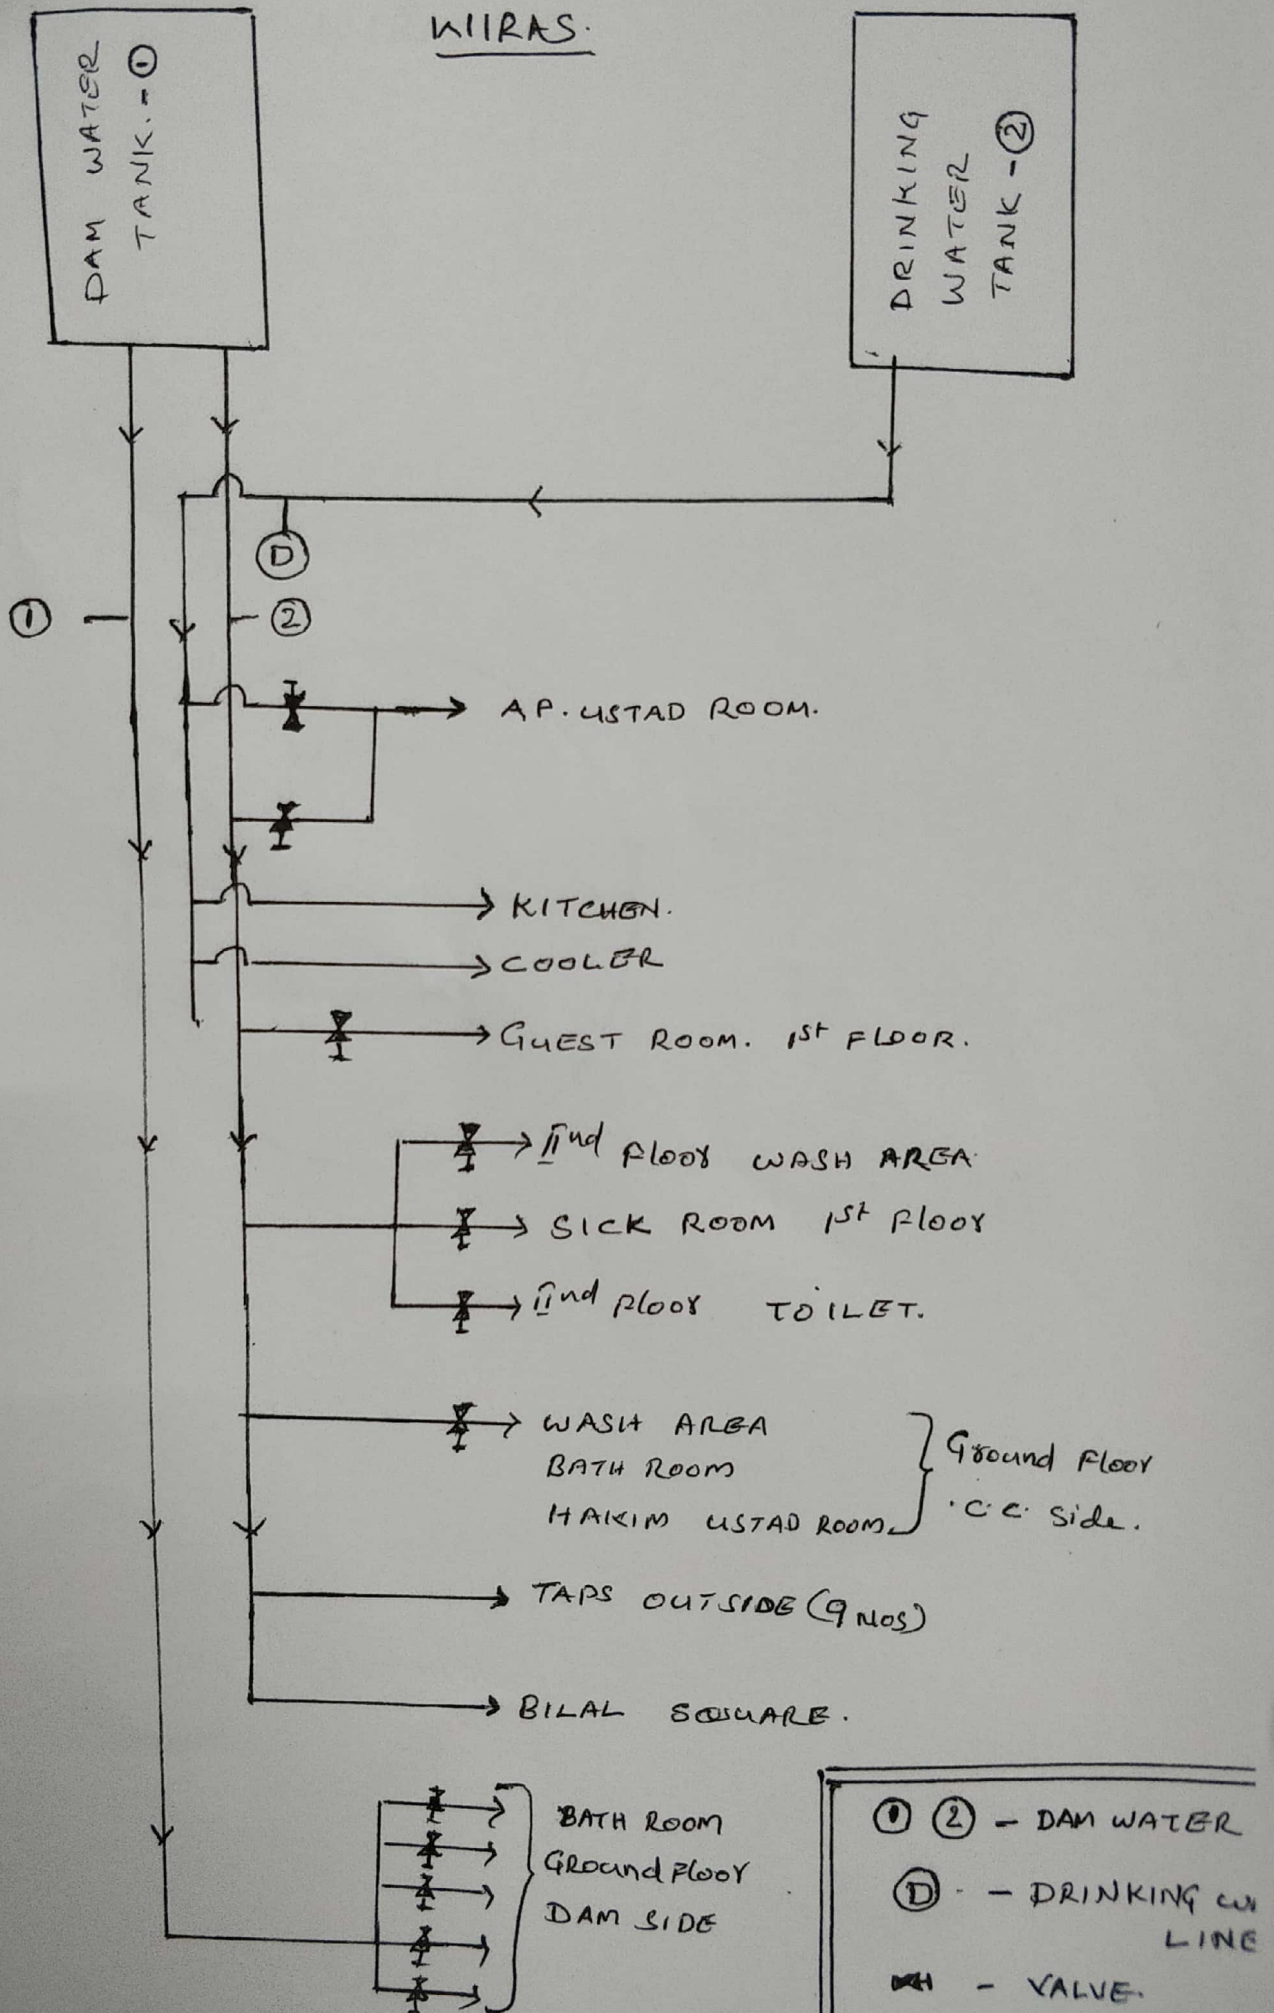 WIRAS.
DAM WATER
TANK.-①
DRINKING
WATER
TANK-②
D
①
②
AP. USTAD ROOM.
KITCHEN.
COOLER
GUEST ROOM. 1st FLOOR.
IInd Floor WASH AREA
SICK ROOM 1st Floor
IInd Floor TOILET.
WASH AREA
BATH ROOM
HAKIM USTAD ROOM
Ground Floor
C.C. Side.
TAPS OUTSIDE (9 NOS)
BILAL SQUARE.
BATH ROOM
GROUND FLOOR
DAM SIDE
① ② - DAM WATER
D - DRINKING
LINE
- VALVE.